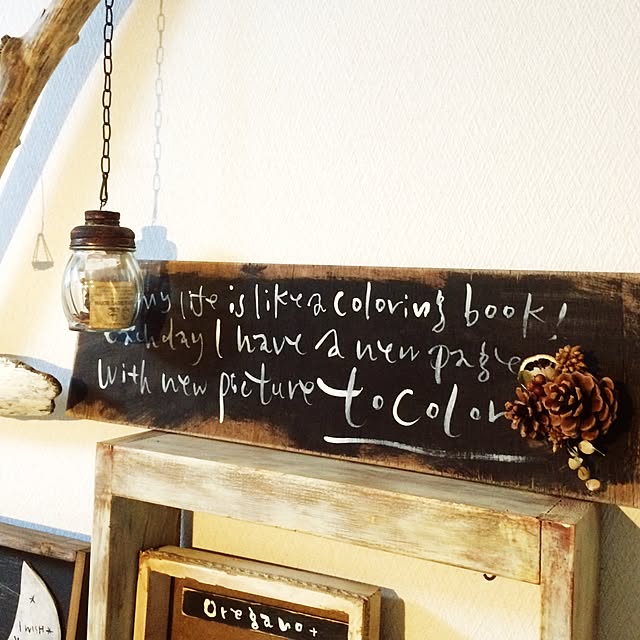 my life is like a coloring book!
each day I have a new page
with new picture to color
Oregano+
I WISH